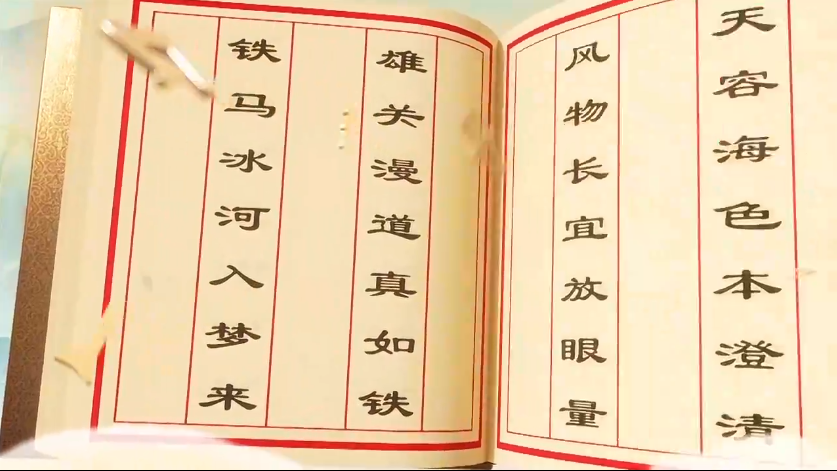 天容海色本澄清
风物长宜放眼量
雄关漫道真如铁
铁马冰河入梦来